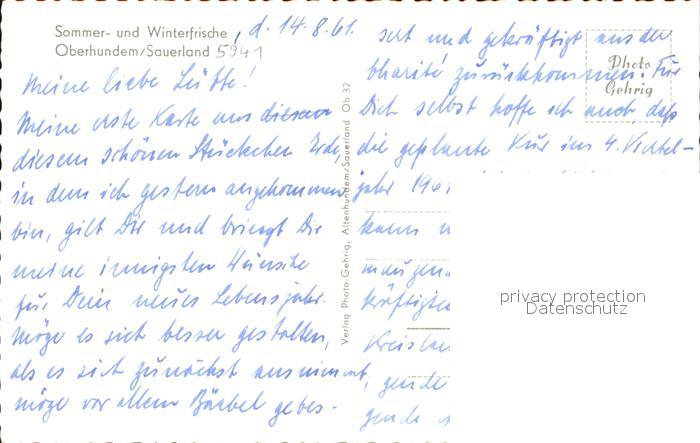 Sommer- und Winterfrische, d. 14.8.61.
Oberhundem/Sauerland 5941
Meine liebe Lütte!
Meine erste Karte aus diesem
diesem schönen Stückchen Erde,
in dem ich gestern angekommen
bin, gilt Dir und bringt Dir
meine innigsten Wünsche
für Dein neues Lebensjahr.
Möge es sich besser gestalten,
als es sich zunächst ausnimmt,
möge vor allem Bärbel gebes-
sert und gekräftigt aus der
Charité zurückkommen. Für
Dich selbst hoffe ich auch, daß
die geplante Kur im 4. Viertel-
jahr 1961
kann
kräftigten
Kreislau
gende
gende
Photo
Gehrig
Verlag Photo-Gehrig, Altenhundem/Sauerland Ob 32
privacy protection
Datenschutz